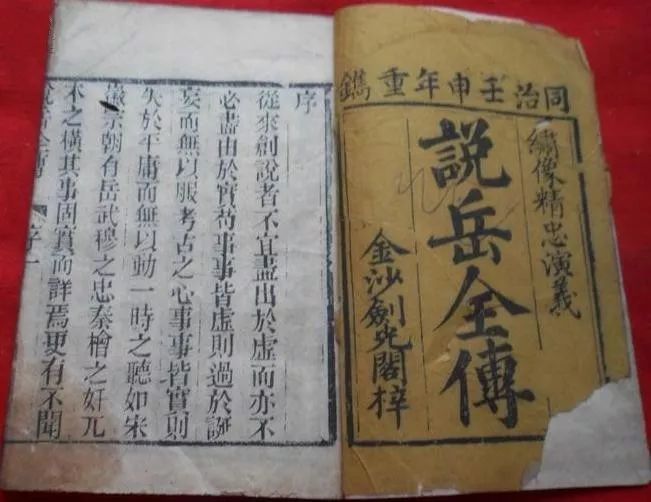 同治壬申年重鐫
繡像精忠演義
説岳全傳
金沙劍閣梓
序
從來創說者不宜盡出於虛而亦不
必盡由於實苟事事皆虛則過於誕
妄而無以服考古之心事事皆實則
失於平庸而無以動一時之聽如宋
徽宗朝有岳武穆之忠秦檜之奸兀
朮之橫其事固實而詳焉更有不聞
說岳全傳 序 一